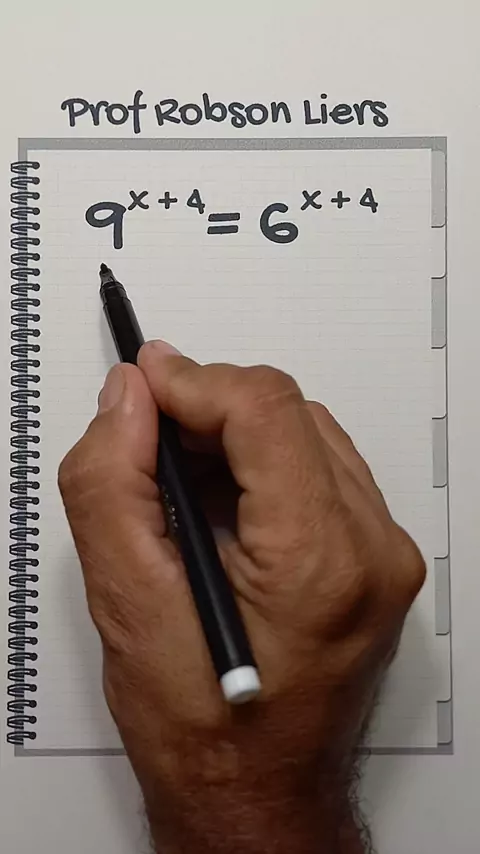 Prof Robson Liers
9^{x + 4} = 6^{x + 4}